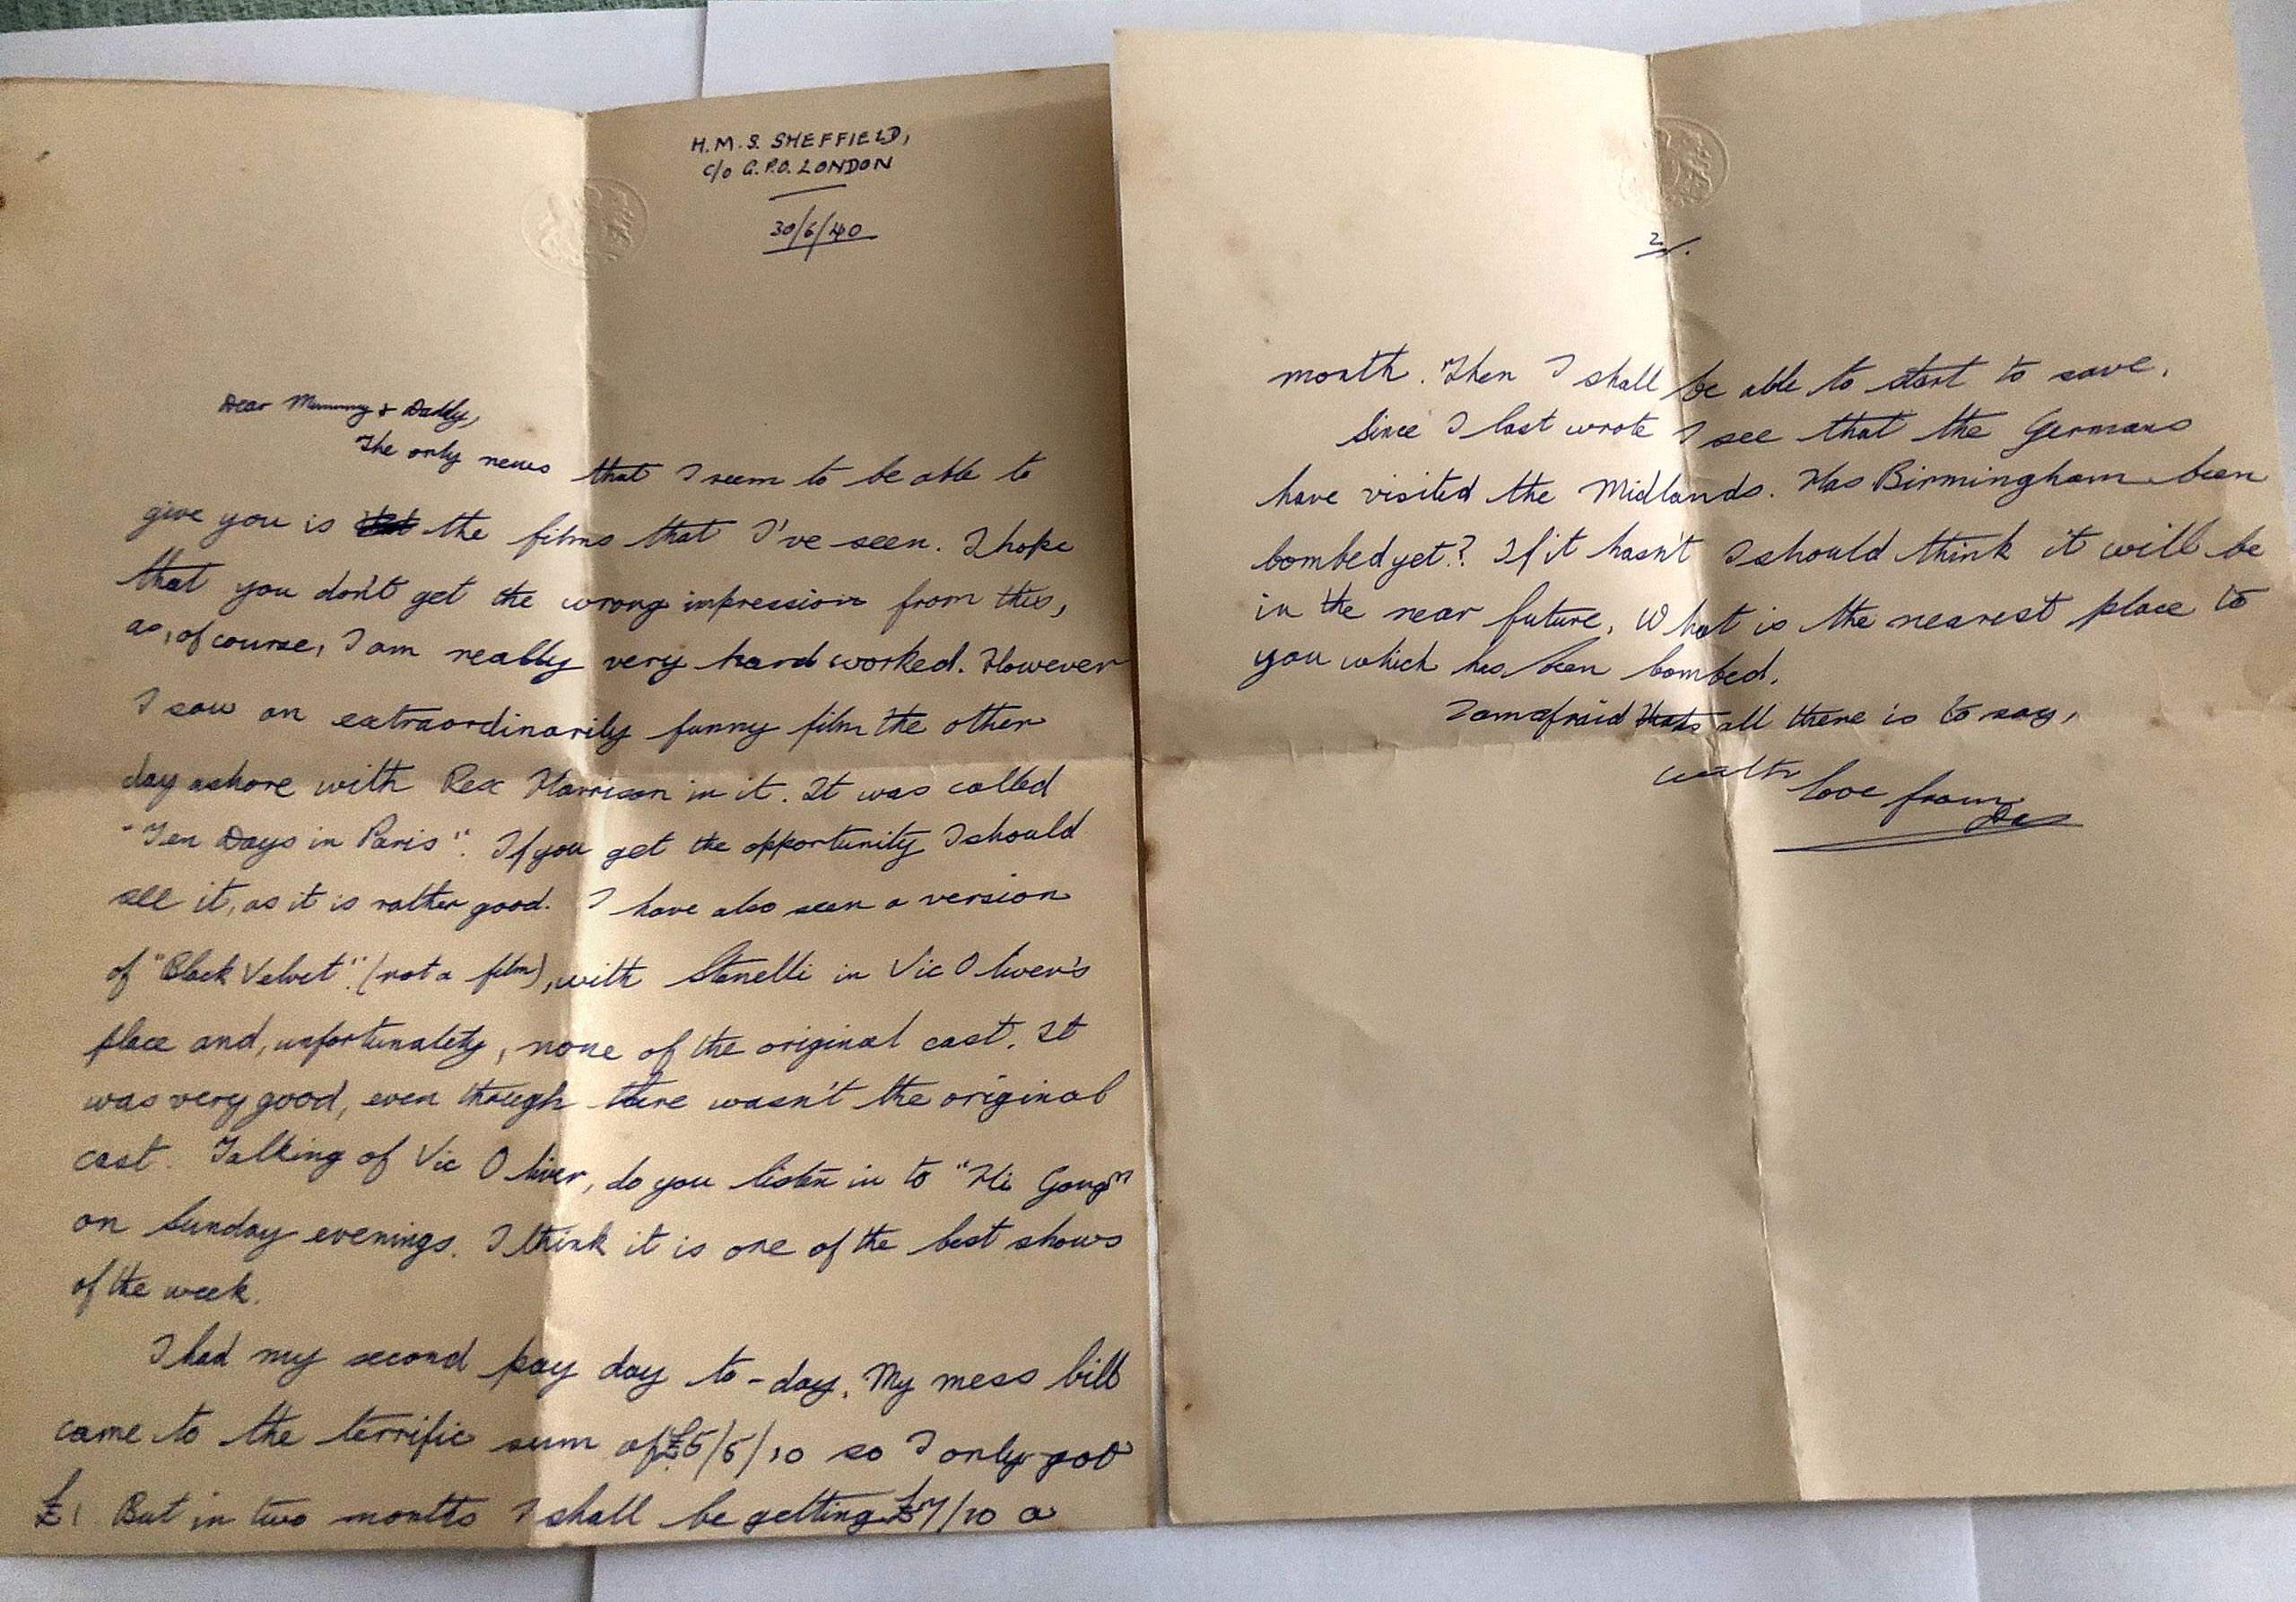 H.M.S. SHEFFIELD,
c/o G.P.O. LONDON
30/6/40
Dear Mummy & Daddy,
The only news that I seem to be able to
give you is the films that I've seen. I hope
that you don't get the wrong impression from this,
as, of course, I am really very hard worked. However
I saw an extraordinarily funny film the other
day ashore with Rex Harrison in it. It was called
"Ten Days in Paris". If you get the opportunity I should
see it, as it is rather good. I have also seen a version
of "Black Velvet" (not a film), with Stanelli in Vic Oliver's
place and, unfortunately, none of the original cast. It
was very good, even though there wasn't the original
cast. Talking of Vic Oliver, do you listen in to "Hi Gang"
on Sunday evenings. I think it is one of the best shows
of the week.
I had my second pay day to-day. My mess bill
came to the terrific sum of £5/5/10 so I only got
£1 But in two months I shall be getting £7/10 a
2/.
month. Then I shall be able to start to save.
Since I last wrote I see that the Germans
have visited the Midlands. Has Birmingham been
bombed yet? If it hasn't I should think it will be
in the near future. What is the nearest place to
you which has been bombed.
I am afraid thats all there is to say,
with love from